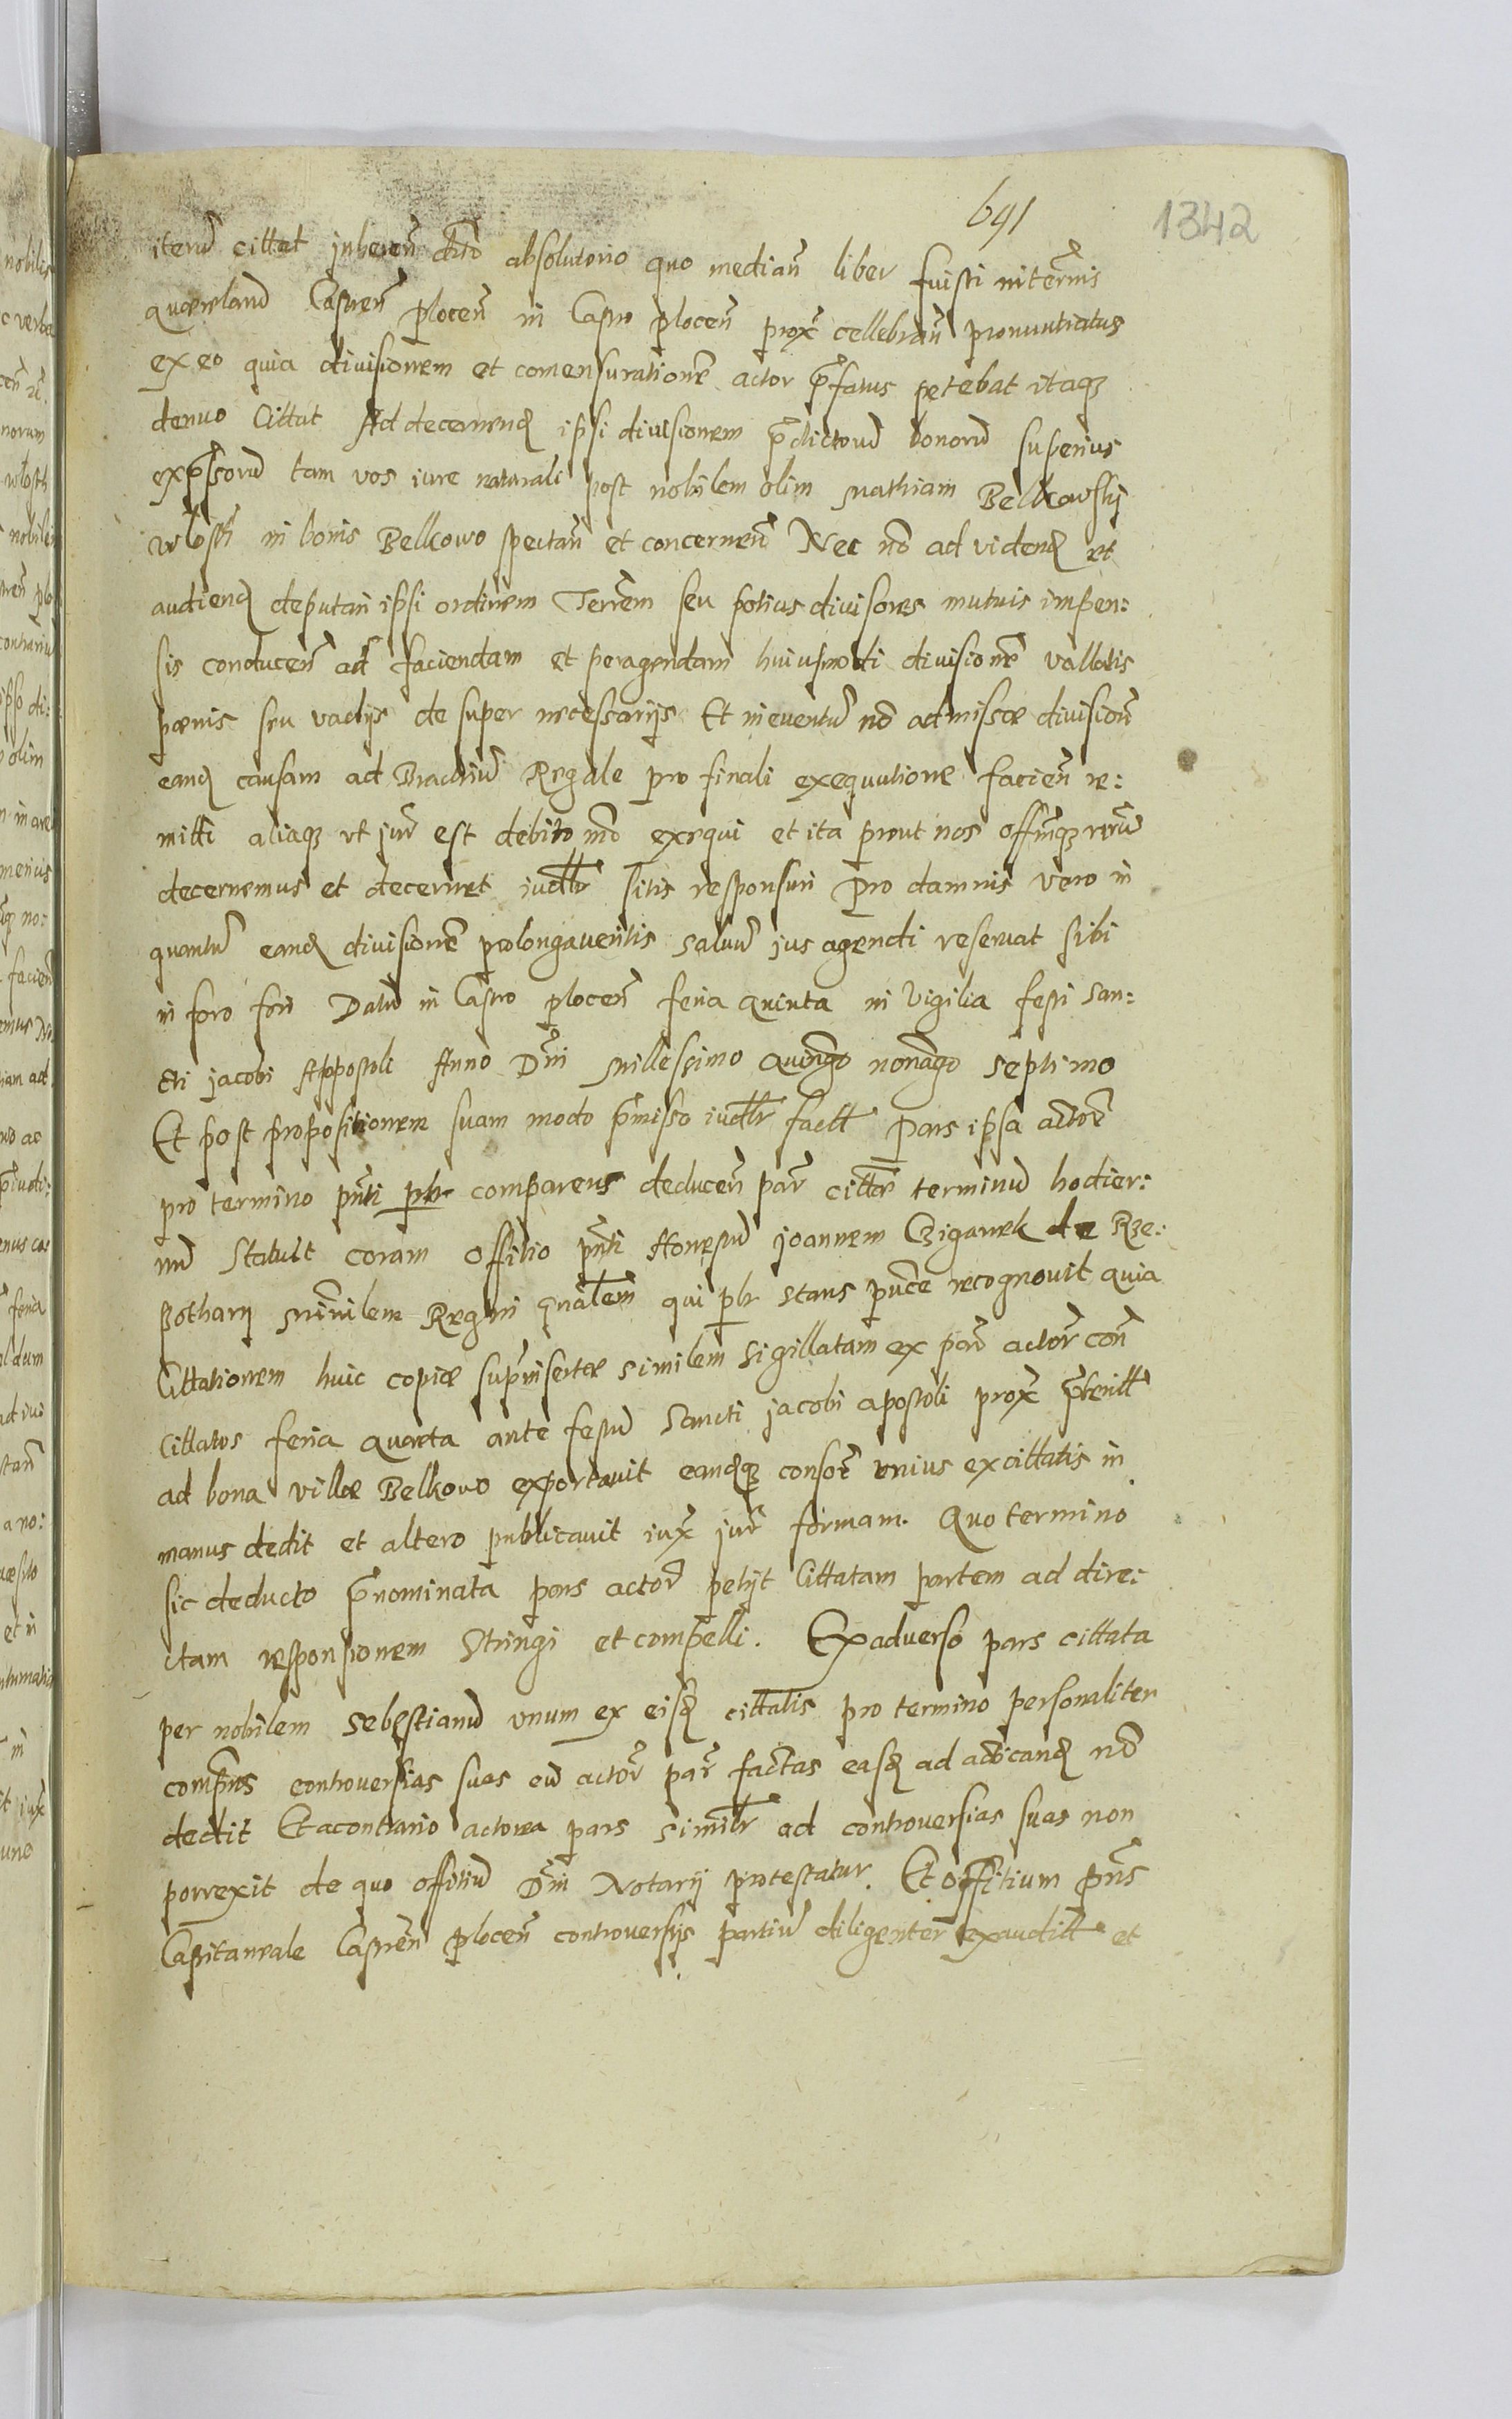 691
1342
iterũ cittat inheren̄ dc̃to absolutorio quo median̄ liber fuisti in term̃is
quærelarũ Castren̄ plocen̄ in Castro plocen̄ prox̃ cellebran̄ pronuntiatus
ex eo quia divisionem et comensurationẽ actor p̃fatus petebat itaqꝫ
denuo Cittat Ad decernenđ ipsi divisionem p̃dictorũ bonorũ superius
exp̃ssorũ tam vos iure naturali post nobilem olim Mathiam Belkowskij
wlosti in bonis Belkowo spectan̄ et concernen̄ Nec nõ ad videnđ et
audienđ deputari ipsi ordinem Terrẽm seu potius divisores mutuis impen:
sis conducen̄ ad faciendam et peragendam huiusmodi divisionẽ vallatis
pœnis seu vadijs de super necessarijs Et in eventũ nõ admissæ divisiõn
eanđ causam ad Brachiũ Regale pro finali exequutione facien̄ re:
mitti aliaqꝫ ut jur̃ est debito mõ exequi et ita prout nos offm̃qꝫ nr̃m̃
decernemus et decernet iudtr̃ sitis responsuri Pro damnis vero in
quantũ eanđ divisionẽ prolongaveritis salvũ jus agendi reservat sibi
in foro fori Datũ in Castro plocen̄ feria quinta in vigilia festi San:
cti jacobi Appostoli Anno Dñi Millessimo Quingõ nonagõ septimo
Et post propositionem suam modo p̃misso iudtr̃ factt̃ Pars ipsa actor̃
pro termino p̃nti pr̃ comparens deducen̄ par̃ cittat̃ terminũ hodier:
nũ Statuit coram Offitio p̃nti Honestũ joannem Cziganek de Rze:
Botharij Mi͠nilem Regni gñalem qui pr̃ stans pub̃ce recognovit quia
Cittationem huic copiæ supr̃insertæ similem sigillatam ex par̃ actor̃ con̄
Cittatos feria quarta ante festũ Sancti jacobi apostoli prox̃ p̃teritt̃
ad bona villæ Belkovo exportavit eandqꝫ consor̃ unius ex cittatis in
manus dedit et altero publicavit iux̃ jur̃ formam. Quo termino
sic deducto p̃nominata pars actor̃ petijt Cittatam partem ad dire:
ctam responsionem Stringi et compelli. Ex adverso pars cittata
per nobilem Sebestianũ unum ex eisđ cittatis pro termino personaliter
compr̃ns controversias suas cũ actor̃ par̃ factas easđ ad acticanđ nõ
dedit Et a contrario actorea pars similtr̃ ad controversias suas non
porrexit de quo offitiũ Dñi Notarij protestatur. Et offitium p̃ns
Capitaneale Castren̄ plocen̄ controversijs partiũ diligenter exauditt̃ et